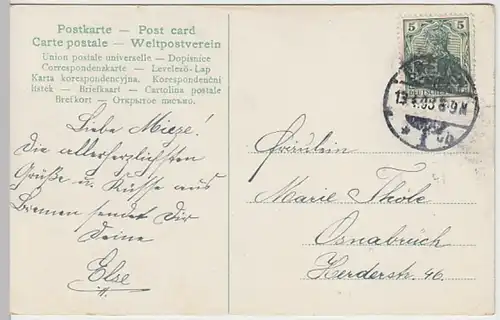 Postkarte — Post card
Carte postale — Weltpostverein
Union postale universelle — Dopisnice
Correspondenzkarte — Levelező-Lap
Karta korespondencyjna. Korespondenční
lístek — Briefkaart — Cartolina postale
Brefkort — Открытое письмо.
Liebe Mieze!
Die allerherzlichsten
Grüße u. Küsse aus
Bremen sendet Dir
Deine
Else
5 5
Fräulein
Marie Thöle
Osnabrück
Herderstr. 46.